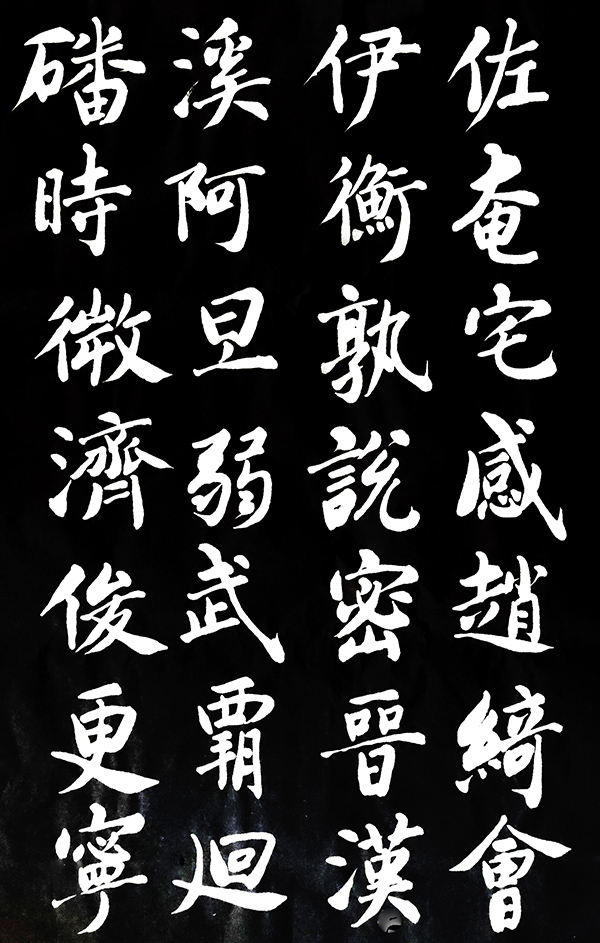 佐奄宅感趙綺會
伊衡孰說密晉漢
溪阿旦弱武霸迴
磻時微濟俊更寧